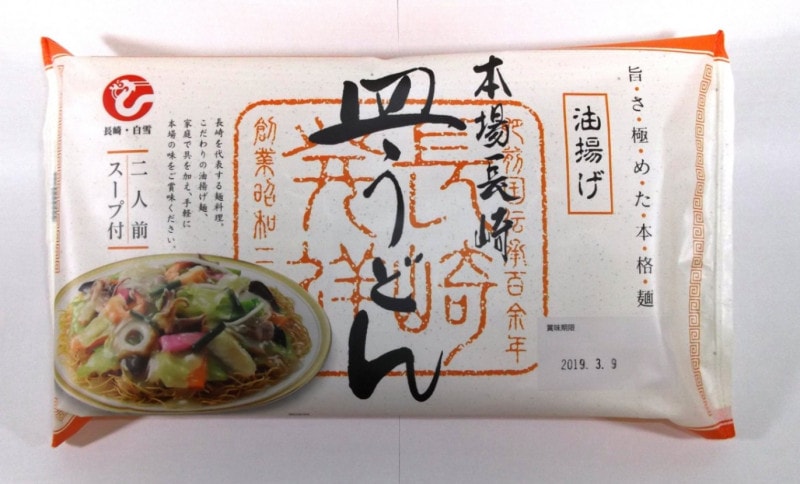 旨・さ・極・め・た・本・格・麺
油揚げ
本場長崎
皿うどん
肥前国伝承百余年
長崎
発祥
創業昭和二
長崎・白雪
長崎を代表する麺料理。
こだわりの油揚げ麺、
家庭で具を加え、手軽に
本場の味をご賞味ください。
二人前
スープ付
賞味期限
2019. 3. 9